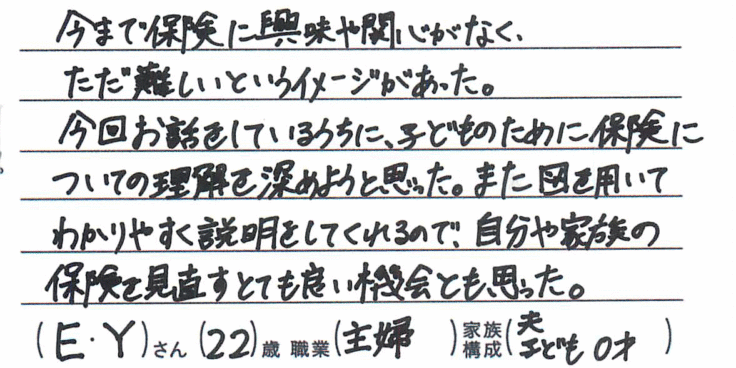 今まで保険に興味や関心がなく、
ただ難しいというイメージがあった。
今回お話をしているうちに、子どものために保険に
ついての理解を深めようと思った。また図を用いて
わかりやすく説明をしてくれるので、自分や家族の
保険を見直すとても良い機会とも思った。
(E・Y)さん (22)歳 職業(主婦)家族構成(夫 子ども 0才)